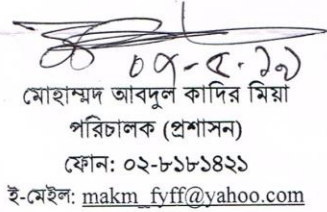 ০৭-৫-১৯
মোহাম্মদ আবদুল কাদির মিয়া
পরিচালক (প্রশাসন)
ফোন: ০২-৮১৮১৪২১
ই-মেইল: makm_fyff@yahoo.com